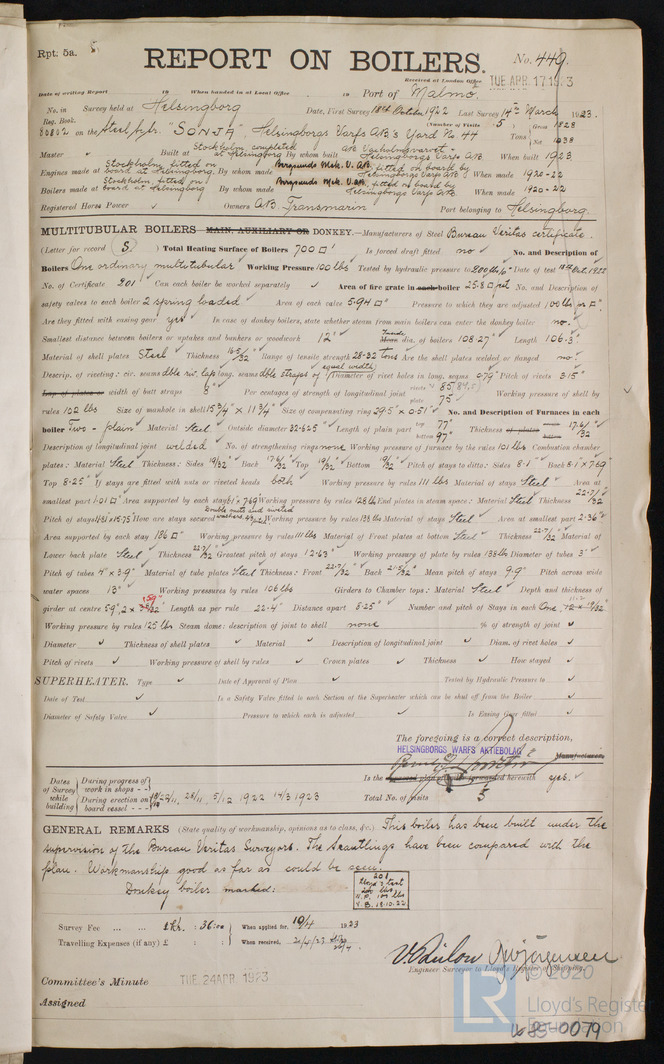 Rpt. 5a.
REPORT ON BOILERS.
No. 449.
Received at London Office TUE APR. 17 1923
Date of writing Report 19 When handed in at Local Office 19 Port of Malmö
No. in Survey held at Helsingborg Date, First Survey 18th October 1922 Last Survey 14th March 1923.
Reg. Book. (Number of Visits 5)
80802 on the Steel "SONJA", Helsingborgs Varfs A.B's Yard No. 44 Tons Gross 1828 Net 1038
Master Built at Stockholm completed at Helsingborg By whom built Helsingborgs Varfs A/B When built 1923
Engines made at Stockholm, fitted on board at Helsingborg. By whom made Bergsunds Mek. V. AB, fitted on board by Helsingborgs Varfs A/B When made 1920-22
Boilers made at Stockholm, fitted on board at Helsingborg By whom made Bergsunds Mek. V. AB, fitted on board by Helsingborgs Varfs A/B When made 1920-22
Registered Horse Power Owners A/B Transmarin Port belonging to Helsingborg.
MULTITUBULAR BOILERS MAIN, AUXILIARY OR DONKEY.—Manufacturers of Steel Bureau Veritas certificate.
(Letter for record S) Total Heating Surface of Boilers 700 □' Is forced draft fitted no No. and Description of
Boilers One ordinary multitubular Working Pressure 100 lbs Tested by hydraulic pressure to 200 lbs Date of test 18th Oct. 1922
No. of Certificate 201 Can each boiler be worked separately Area of fire grate in each boiler 25.8 □ feet No. and Description of
safety valves to each boiler 2 spring loaded Area of each valve 5.94 □" Pressure to which they are adjusted 100 lbs
Are they fitted with easing gear yes In case of donkey boilers, state whether steam from main boilers can enter the donkey boiler no.
Smallest distance between boilers or uptakes and bunkers or woodwork 12" Inside Mean dia. of boilers 108.27" Length 106.3"
Material of shell plates Steel Thickness 16.5/32 Range of tensile strength 28-32 tons Are the shell plates welded or flanged no.
Descrip. of riveting: cir. seams dble riv. lap long. seams dble straps of equal width Diameter of rivet holes in long. seams 0.79" Pitch of rivets 3.15"
Lap of plates or width of butt straps 8" Per centages of strength of longitudinal joint plate 75 Working pressure of shell by
rules 102 lbs Size of manhole in shell 15 3/4" x 11 3/4" Size of compensating ring 29.5" x 0.51" No. and Description of Furnaces in each
boiler Two - plain Material Steel Outside diameter 32.625" Length of plain part top 77" bottom 97" Thickness of plates 17.6/32"
Description of longitudinal joint welded No. of strengthening rings none Working pressure of furnace by the rules 101 lbs Combustion chamber
plates: Material Steel Thickness: Sides 19/32" Back 17.6/32" Top 19/32" Bottom 19/32" Pitch of stays to ditto: Sides 8.1" Back 8.1 x 7.69"
Top 8.25" If stays are fitted with nuts or riveted heads both Working pressure by rules 111 lbs Material of stays Steel Area at
smallest part 1.01 □" Area supported by each stay 8.1" x 7.69" Working pressure by rules 128 lbs End plates in steam space: Material Steel Thickness 22.7/32"
Pitch of stays How are stays secured Double nuts and riveted washers Working pressure by rules 138 lbs Material of stays Steel Area at smallest part 2.36"
Area supported by each stay 186 □" Working pressure by rules 111 lbs Material of Front plates at bottom Steel Thickness 22.7/32" Material of
Lower back plate Steel Thickness 22.7/32" Greatest pitch of stays 12.63" Working pressure of plate by rules 138 lbs Diameter of tubes 3"
Pitch of tubes 4" x 3.9" Material of tube plates Steel Thickness: Front 22.7/32" Back 21.5/32" Mean pitch of stays 9.9" Pitch across wide
water spaces 13" Working pressures by rules 106 lbs Girders to Chamber tops: Material Steel Depth and thickness of
girder at centre 5.9", 2 x Length as per rule 22.4" Distance apart 8.25" Number and pitch of Stays in each One
Working pressure by rules 125 lbs Steam dome: description of joint to shell none % of strength of joint
Diameter Thickness of shell plates Material Description of longitudinal joint Diam. of rivet holes
Pitch of rivets Working pressure of shell by rules Crown plates Thickness How stayed
SUPERHEATER. Type Date of Approval of Plan Tested by Hydraulic Pressure to
Date of Test Is a Safety Valve fitted to each Section of the Superheater which can be shut off from the Boiler
Diameter of Safety Valve Pressure to which each is adjusted Is Easing Gear fitted
The foregoing is a correct description,
HELSINGBORGS WARFS AKTIEBOLAG
Manufacturer.
Dates of Survey while building
During progress of work in shops - -
During erection on board vessel - - - 18/10 24/11, 28/11, 5/12 1922 14/3 1923
Is the approved plan of boiler forwarded herewith yes.
Total No. of visits 5
GENERAL REMARKS (State quality of workmanship, opinions as to class, &c.) This boiler has been built under the
supervision of the Bureau Veritas Surveyors. The Scantlings have been compared with the
plan. Workmanship good as far as could be seen.
Donkey boiler marked:
201
Lloyd's test
200 lbs
W.P. 100 lbs
V.B. 18.10.22
Survey Fee ... ... £ Kr. : 36:00 When applied for, 10/4 1923
Travelling Expenses (if any) £ : : When received, 20/4/23
Engineer Surveyor to Lloyd's Register of Shipping.
Committee's Minute TUE. 24 APR. 1923
Assigned
© 2020
LR
Lloyd's Register
Foundation
0079